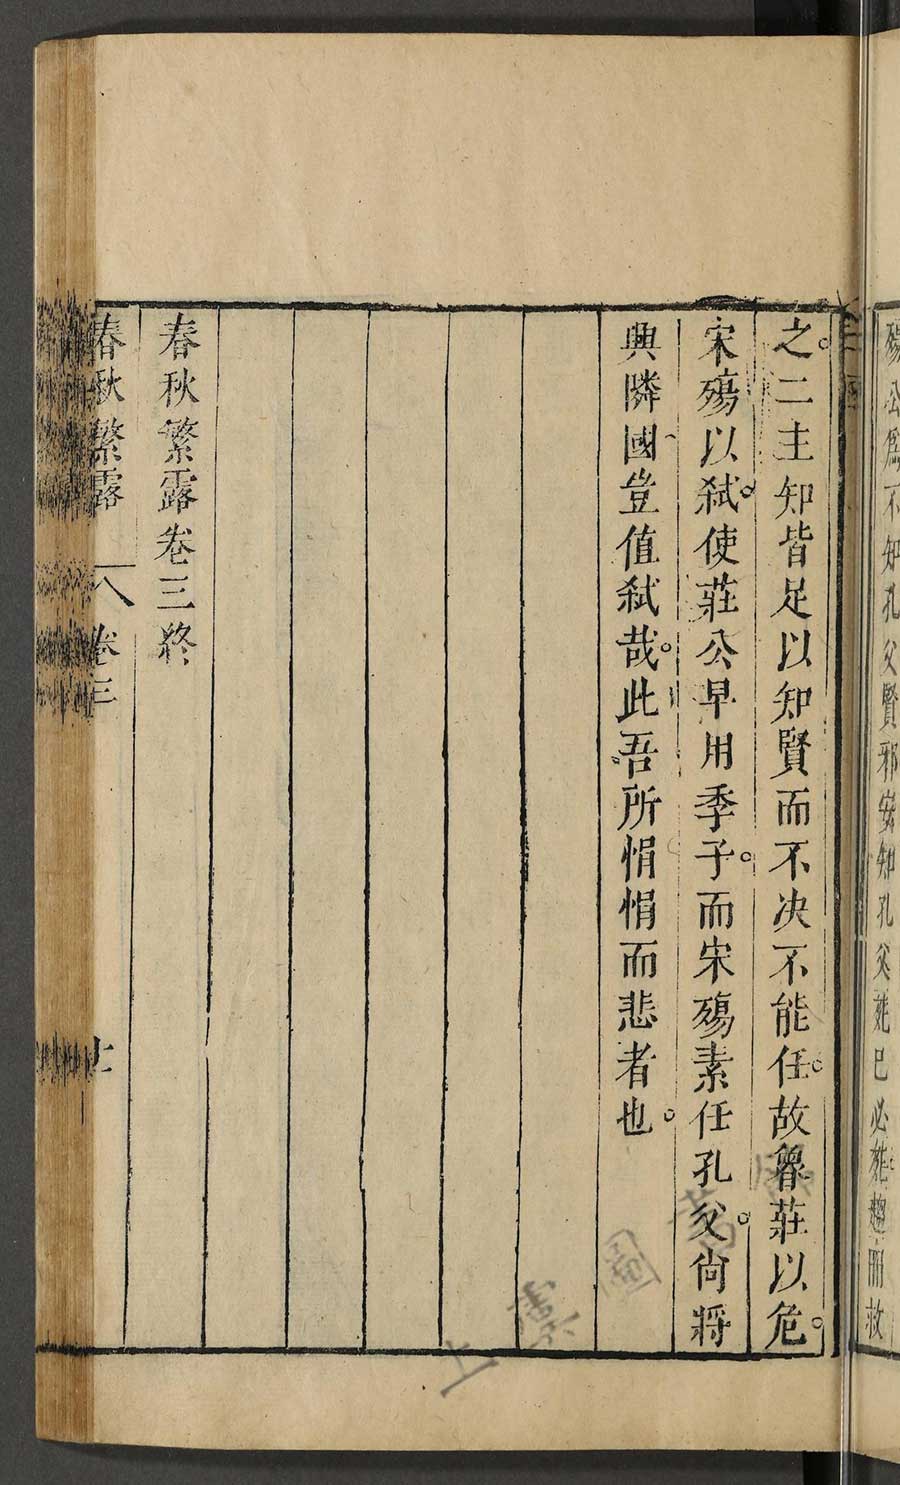 殤公爲不知孔父賢邪安知孔父死己必死趨而救
之二主知皆足以知賢而不決不能任故魯莊以危
宋殤以弑使莊公早用季子而宋殤素任孔父尙將
興隣國豈值弑哉此吾所悁悁而悲者也
春秋繁露卷三終
春秋繁露
卷三
上虞圖書館